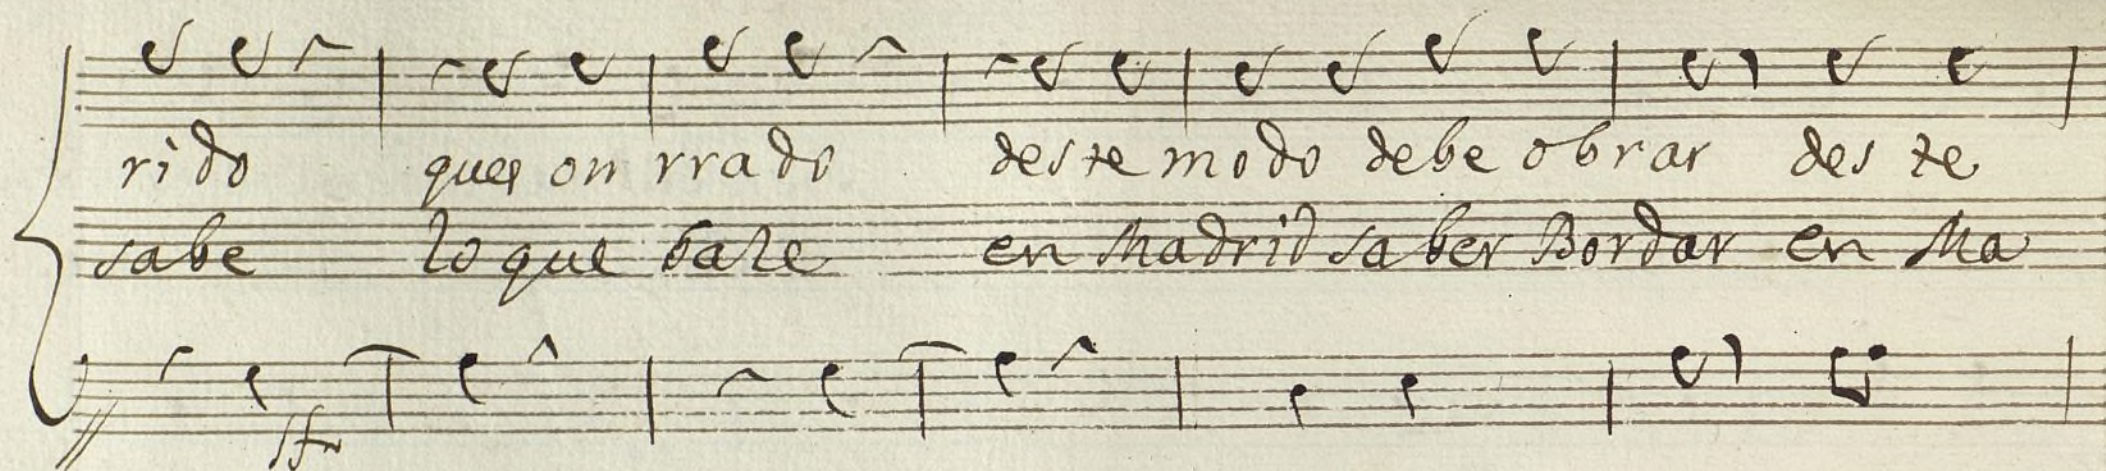 rido ques onrrado deste modo debe obrar des te
sabe lo que baze en Madrid saber Bordar en Ma